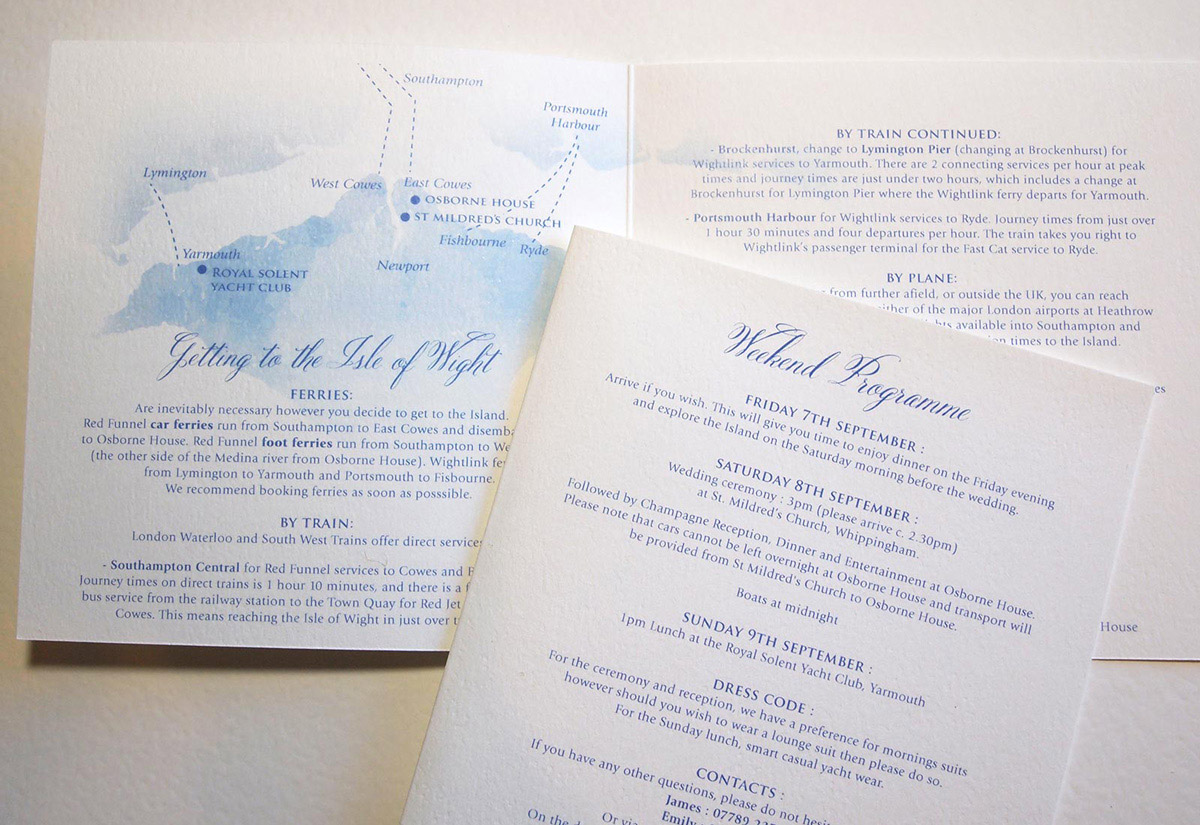 Southampton
Portsmouth
Harbour
Lymington
West Cowes
East Cowes
OSBORNE HOUSE
ST MILDRED'S CHURCH
Fishbourne
Ryde
Yarmouth
Newport
ROYAL SOLENT
YACHT CLUB
Getting to the Isle of Wight
FERRIES:
Are inevitably necessary however you decide to get to the Island.
Red Funnel car ferries run from Southampton to East Cowes and
to Osborne House. Red Funnel foot ferries run from Southampton to
(the other side of the Medina river from Osborne House). Wightlink
from Lymington to Yarmouth and Portsmouth to Fisbourne.
We recommend booking ferries as soon as posssible.
BY TRAIN:
London Waterloo and South West Trains offer direct
- Southampton Central for Red Funnel services to Cowes and
Journey times on direct trains is 1 hour 10 minutes, and there is a
bus service from the railway station to the Town Quay for Red Jet
Cowes. This means reaching the Isle of Wight in just over
BY TRAIN CONTINUED:
- Brockenhurst, change to Lymington Pier (changing at Brockenhurst) for
Wightlink services to Yarmouth. There are 2 connecting services per hour at peak
times and journey times are just under two hours, which includes a change at
Brockenhurst for Lymington Pier where the Wightlink ferry departs for Yarmouth.
- Portsmouth Harbour for Wightlink services to Ryde. Journey times from just over
1 hour 30 minutes and four departures per hour. The train takes you right to
Wightlink's passenger terminal for the Fast Cat service to Ryde.
BY PLANE:
from further afield, or outside the UK, you can reach
of the major London airports at Heathrow
available into Southampton and
times to the Island.
House
Weekend Programme
FRIDAY 7TH SEPTEMBER :
Arrive if you wish. This will give you time to enjoy dinner on the Friday evening
and explore the Island on the Saturday morning before the wedding.
SATURDAY 8TH SEPTEMBER :
Wedding ceremony : 3pm (please arrive c. 2.30pm)
at St. Mildred's Church, Whippingham.
Followed by Champagne Reception, Dinner and Entertainment at Osborne House.
Please note that cars cannot be left overnight at Osborne House and transport will
be provided from St Mildred's Church to Osborne House.
Boats at midnight
SUNDAY 9TH SEPTEMBER :
1pm Lunch at the Royal Solent Yacht Club, Yarmouth
DRESS CODE :
For the ceremony and reception, we have a preference for mornings suits
however should you wish to wear a lounge suit then please do so.
For the Sunday lunch, smart casual yacht wear.
CONTACTS :
If you have any other questions, please do not
James : 07789
Emily
Or
On the